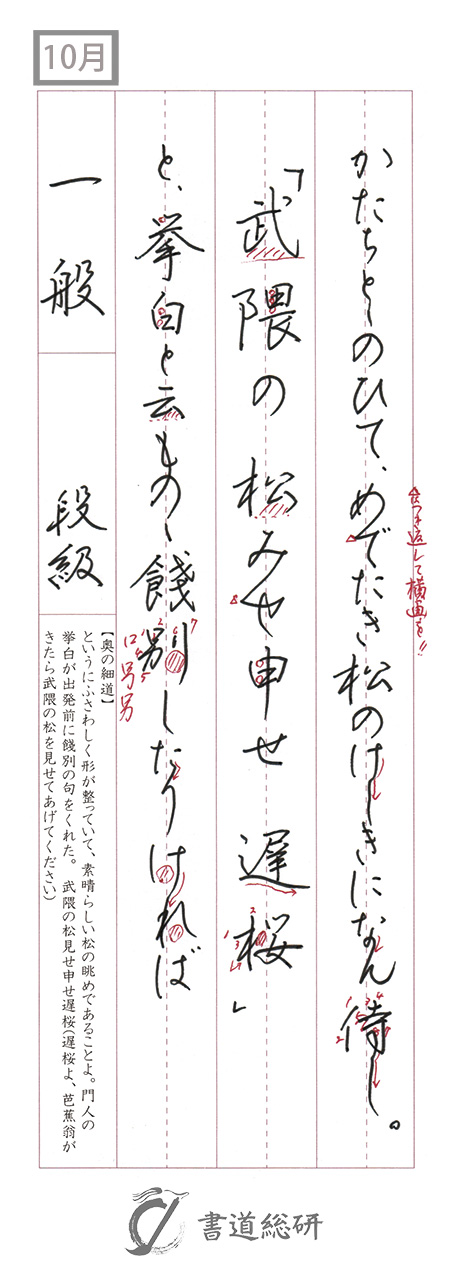 10月
かたちとゝのひて、めでたき松のけしきになん侍し。
つき返して横画を!!
「武隈の松みせ申せ遅桜」
と、挙白と云ものゝ餞別したりければ
一般
段級
【奥の細道】
というにふさわしく形が整っていて、素晴らしい松の眺めであることよ。門人の
挙白が出発前に餞別の句をくれた。武隈の松見せ申せ遅桜(遅桜よ、芭蕉翁が
きたら武隈の松を見せてあげてください)
書道総研